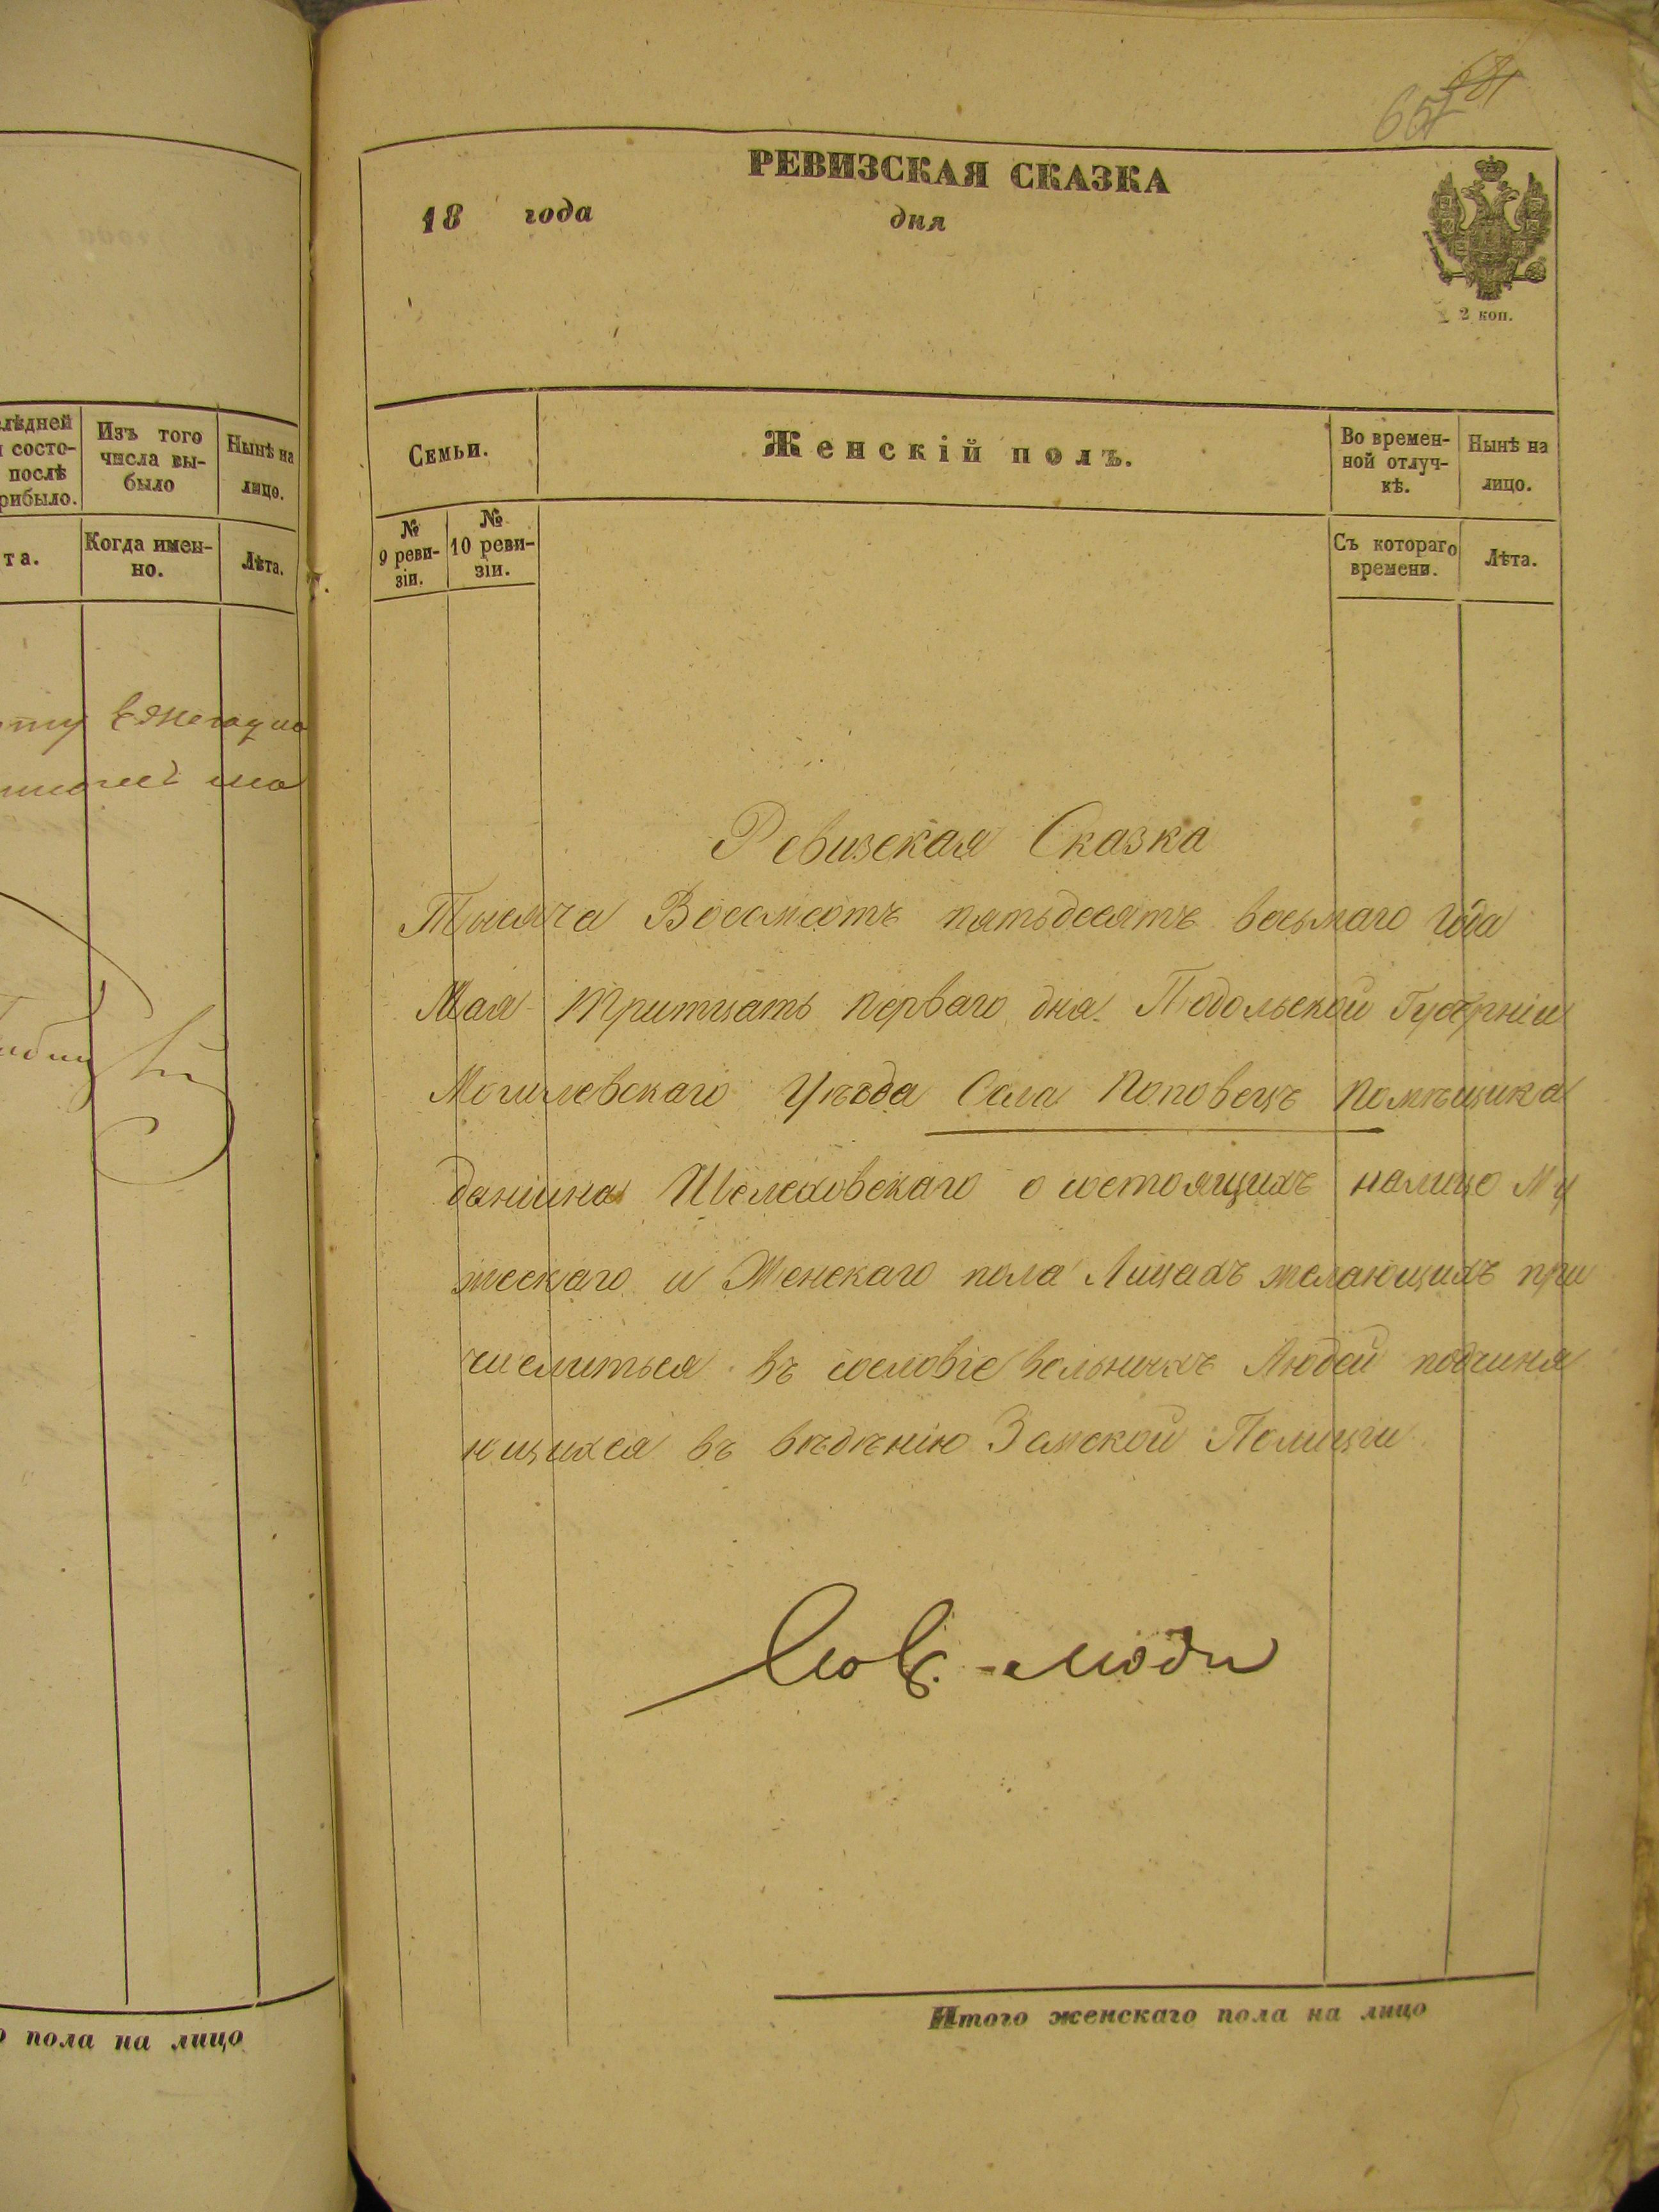 слѣдней
состо-
послѣ
рибыло.
Изъ того
числа вы-
было
Нынѣ на
лицо.
та.
Когда имен-
но.
Лѣта.
о пола на лицо
РЕВИЗСКАЯ СКАЗКА
18 года дня
2 коп.
Семьи.
Женскій полъ.
Во времен-
ной отлуч-
кѣ.
Нынѣ на
лицо.
№
9 реви-
зіи.
№
10 реви-
зіи.
Съ котораго
времени.
Лѣта.
Ревизская Сказка
Тысяча Восемсотъ пятьдесятъ восьмаго года
Мая тритцать перваго дня Подольской Губерніи
Могилевскаго Уѣзда Села Поповецъ помѣщика
Шелеховскаго о состоящихъ налицо Му
жескаго и Женскаго пола Лицахъ желающихъ при
числиться въ сословіе вольныхъ Людей подчиня
ющихся въ вѣдѣнію Земской Полиціи
люди
Итого женскаго пола на лицо